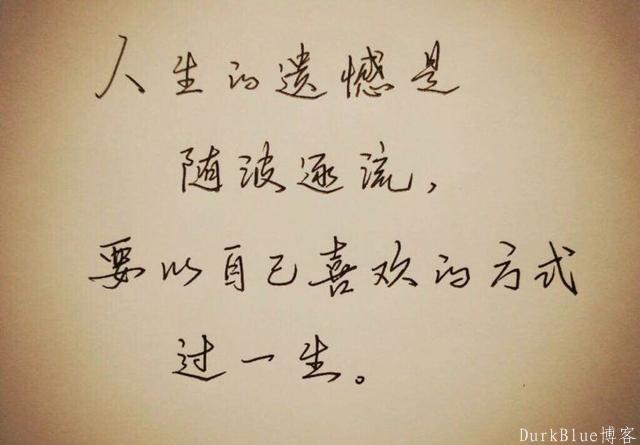 人生的遗憾是
随波逐流，
要以自己喜欢的方式
过一生。
DurkBlue博客